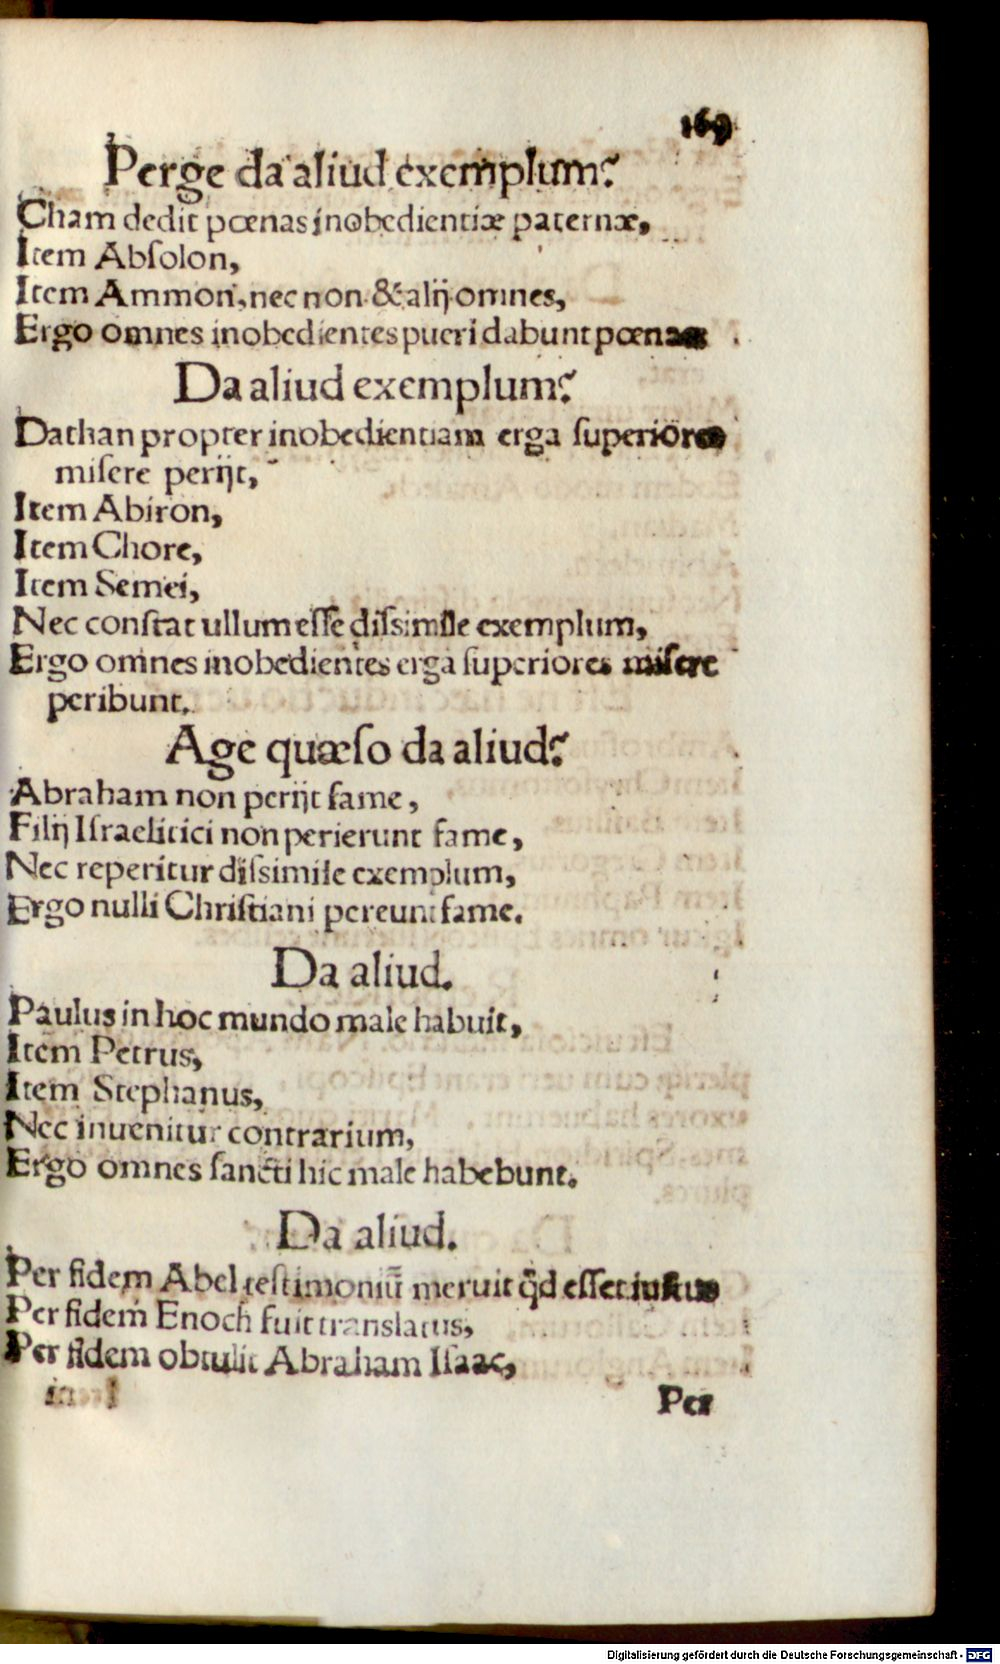 169
Perge da aliud exemplum?
Cham dedit pœnas inobedientiæ paternæ,
Item Abſolon,
Item Ammon, nec non & alij omnes,
Ergo omnes inobedientes pueri dabunt pœnas.
Da aliud exemplum?
Dathan propter inobedientiam erga ſuperiores
miſere perijt,
Item Abiron,
Item Chore,
Item Semei,
Nec conſtat ullum eſſe diſsimile exemplum,
Ergo omnes inobedientes erga ſuperiores miſere
peribunt.
Age quæſo da aliud?
Abraham non perijt fame,
Filij Iſraelitici non perierunt fame,
Nec reperitur diſsimile exemplum,
Ergo nulli Chriſtiani pereunt fame.
Da aliud.
Paulus in hoc mundo male habuit,
Item Petrus,
Item Stephanus,
Nec inuenitur contrarium,
Ergo omnes ſancti hic male habebunt.
Da aliud.
Per fidem Abel teſtimoniū meruit qd̄ eſſet iuſtus
Per fidem Enoch fuit translatus,
Per fidem obtulit Abraham Iſaac,
Per
Digitalisierung gefördert durch die Deutsche Forschungsgemeinschaft - DFG